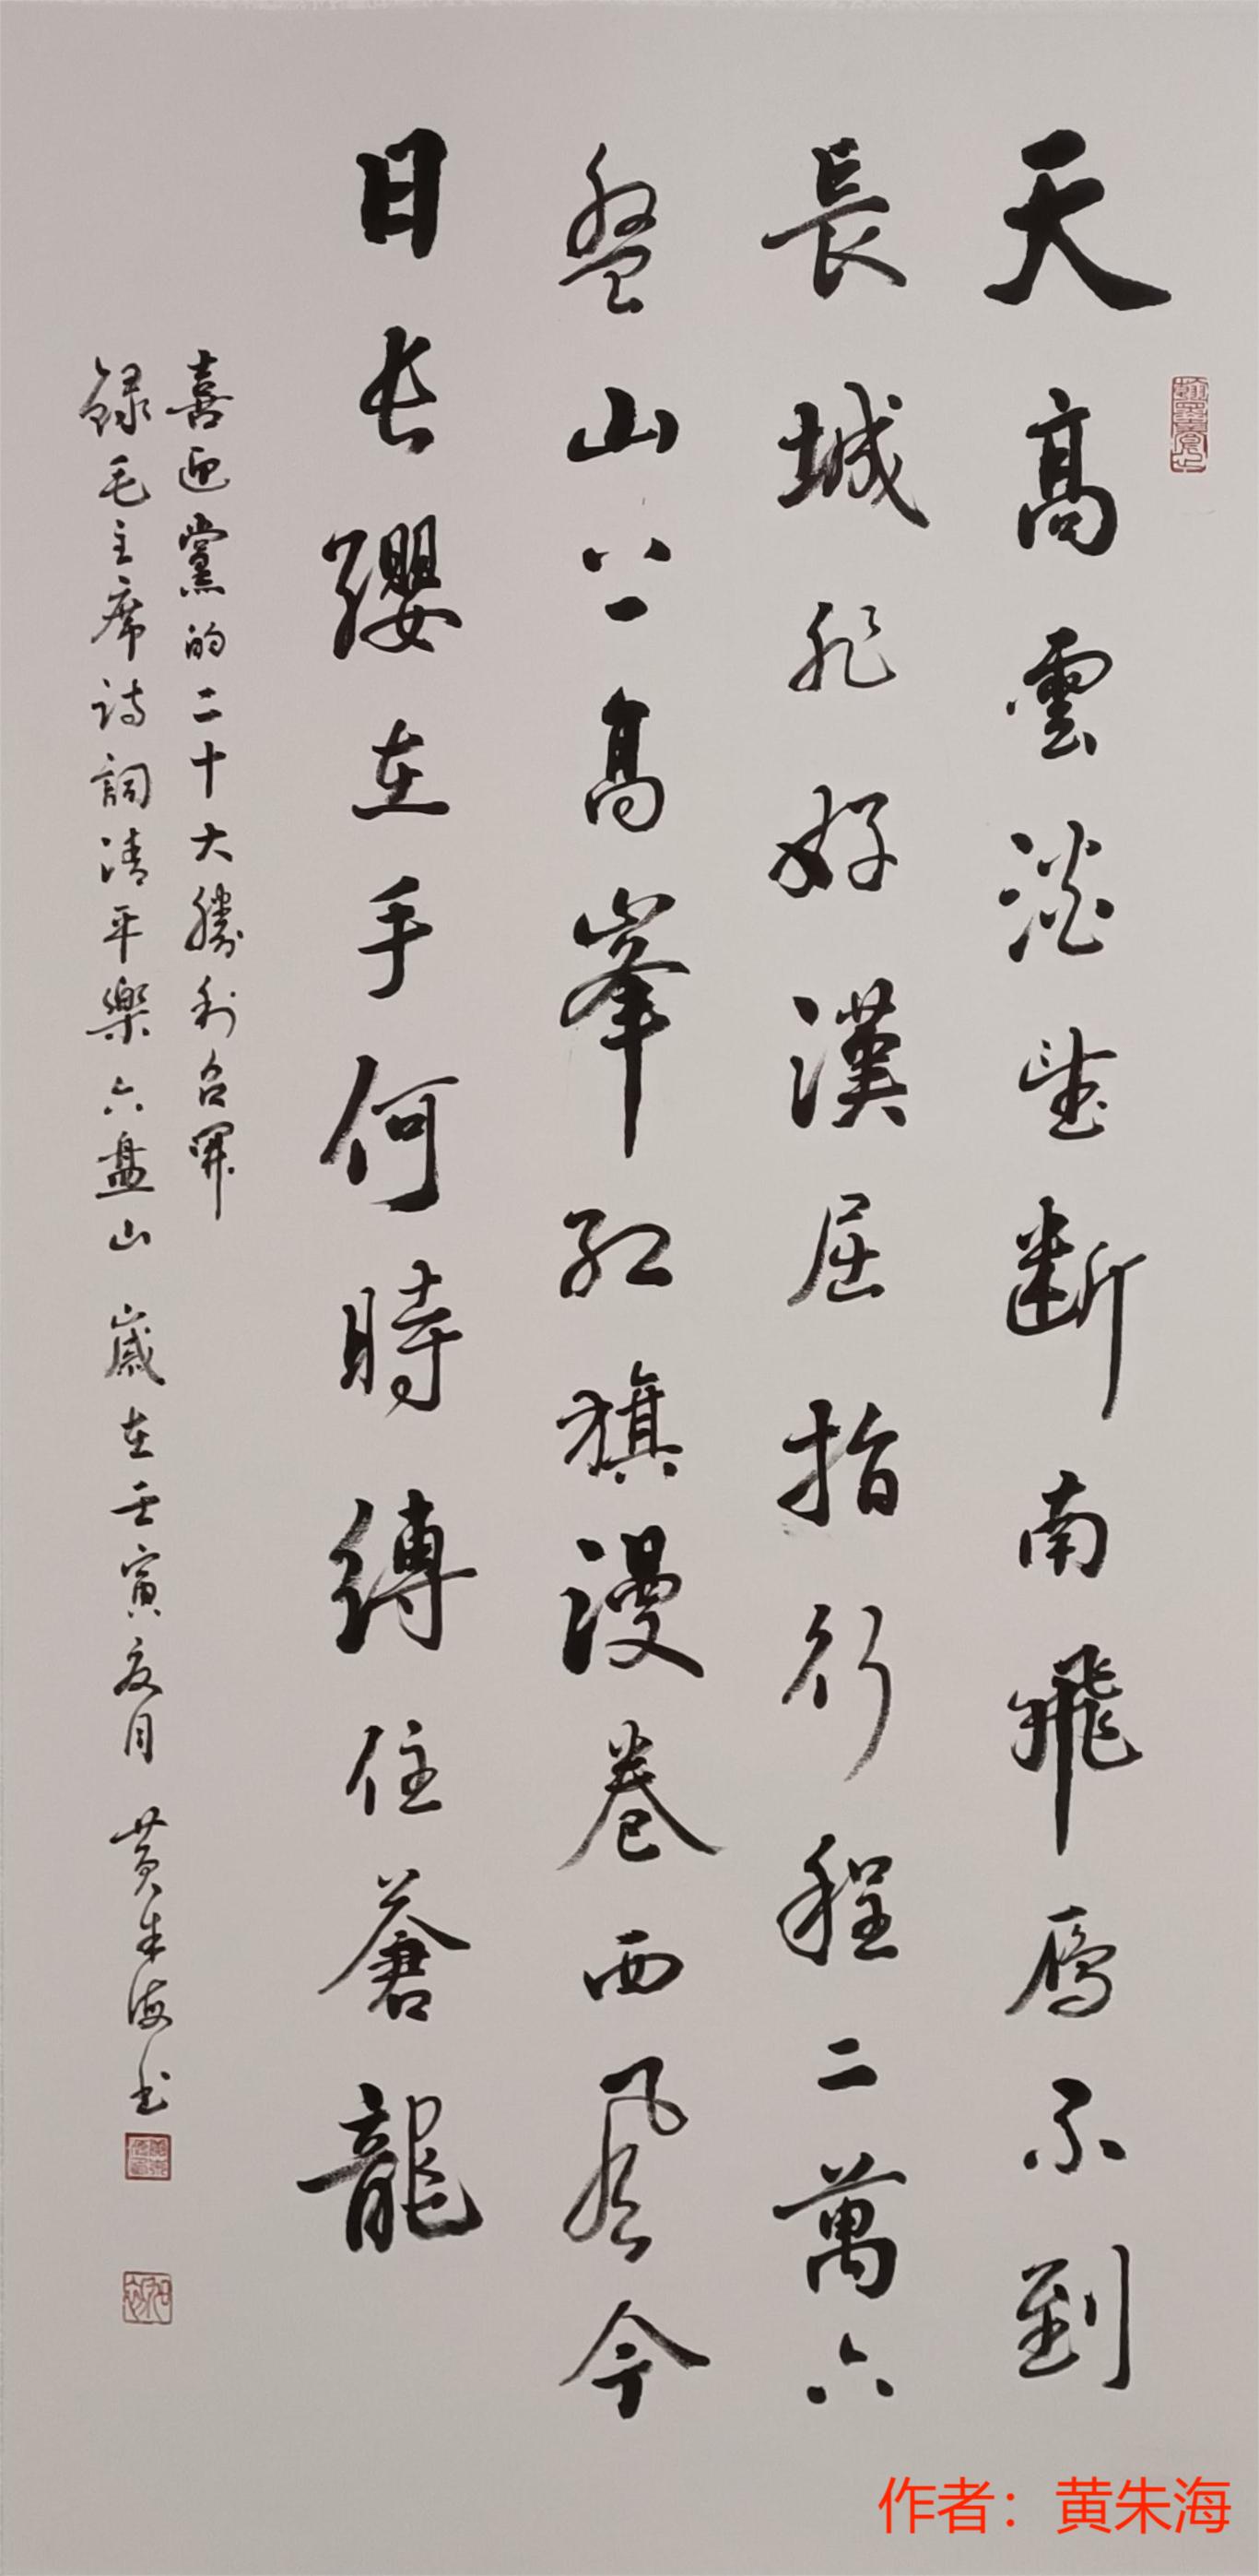 天高雲淡望斷南飛鴈不到
長城非好漢屈指行程二萬六
盤山上高峯红旗漫卷西风今
日长纓在手何時縛住蒼龍
喜迎黨的二十大勝利召開
録毛主席诗詞清平樂六盘山 歲在壬寅夏月 黄朱海书
作者：黄朱海